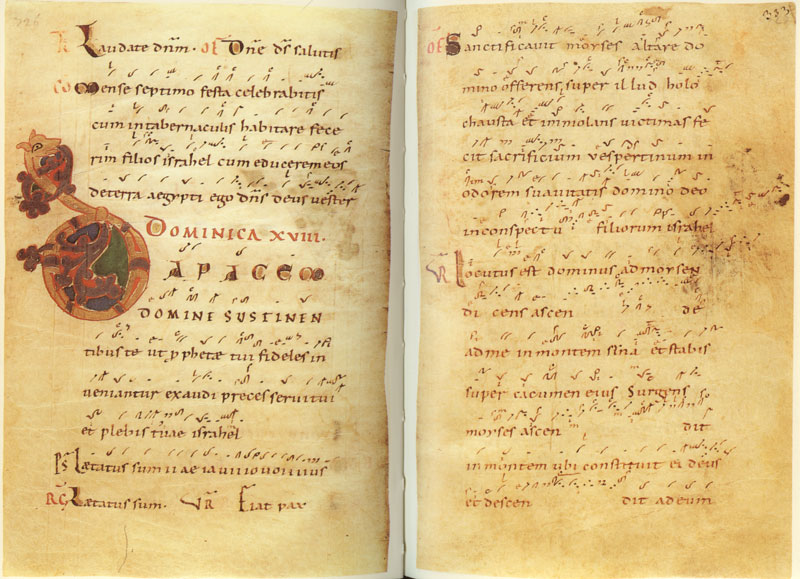 Laudate dnm. OF Dne ds salutis
CO Mense septimo festa celebrabitis
cum intabernaculis habitare fece
rim filios israhel cum educerem eos
deterra aegypti ego dns deus vester
DOMINICA XVIII.
DA PACEM
DOMINE SUSTINEN
tibus te ut prophetae tui fideles in
veniantur exaudi preces servi tui
et plebis tuae israhel
Ps Laetatus sum
RG Laetatus sum. VR Fiat pax
333
OF Sanctificavit moyses altare do
mino offerens super illud holo
chausta et immolans victimas fe
cit sacrificium vespertinum in
odorem suavitatis domino deo
inconspectu filiorum israhel
VR Locutus est dominus ad moysen
di cens ascen de
ad me in montem sina et stabis
super cacumen eius Surgens
moyses ascen dit
in montem ubi constituit ei deus
et descen dit ad eum